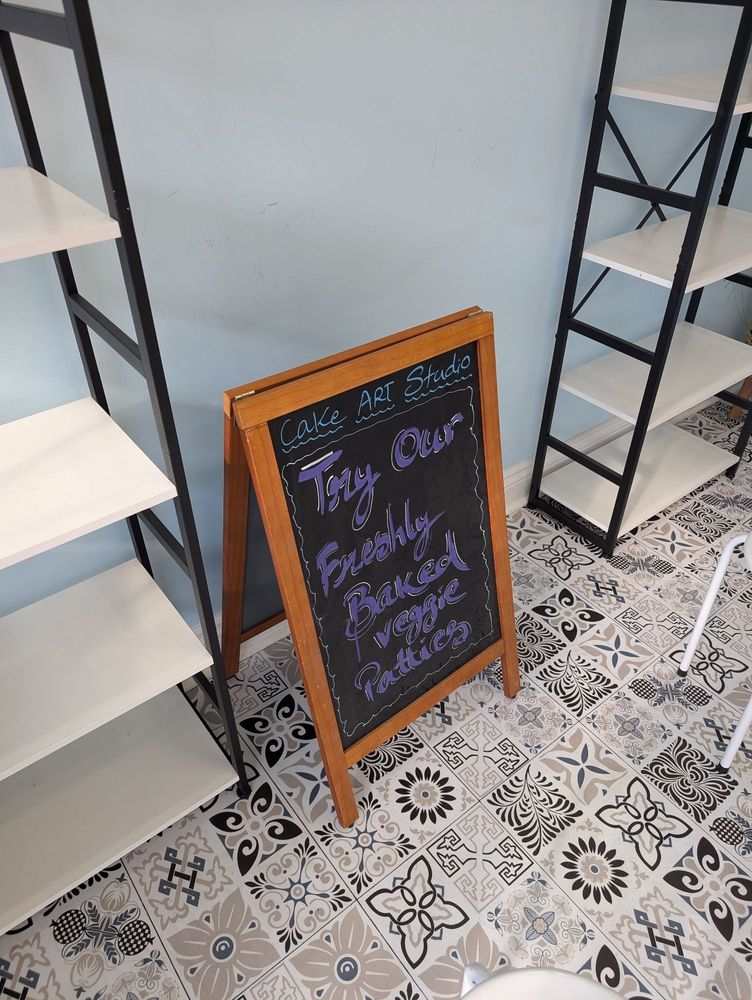 Cake ART Studio
Try Our
Freshly
Baked
veggie
Patties